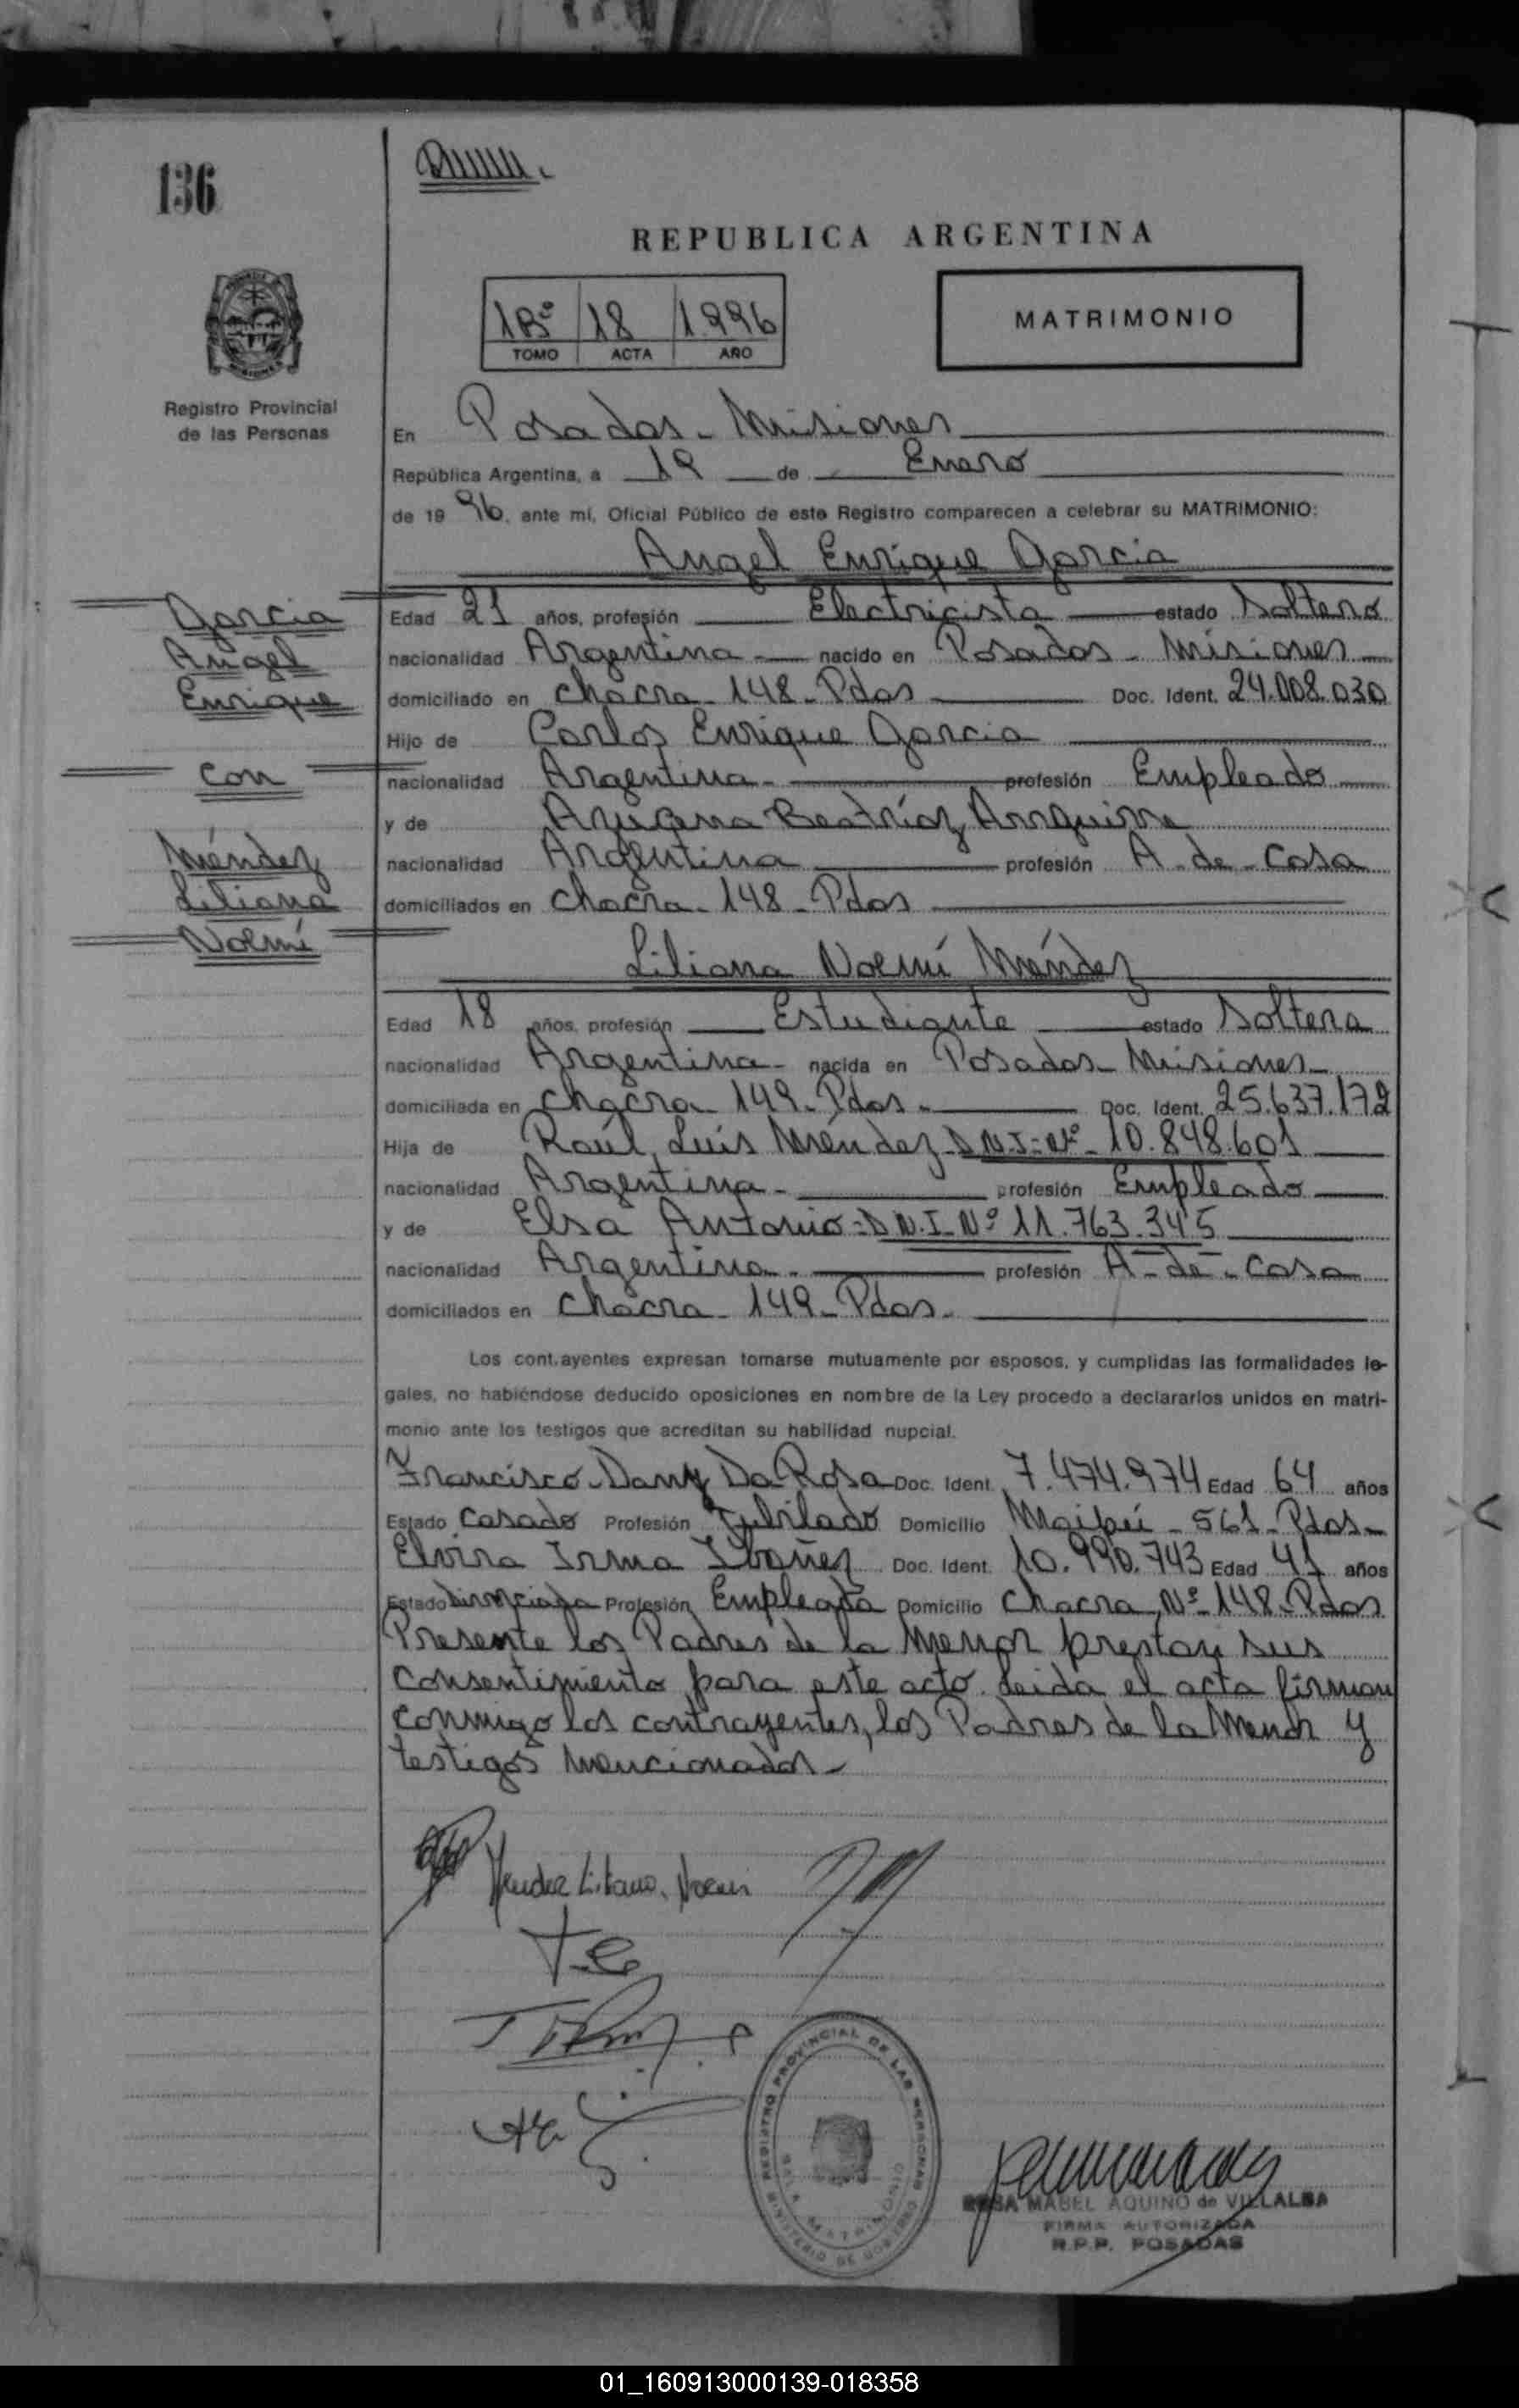 136
REPUBLICA ARGENTINA
1Bº 18 1996
TOMO ACTA AÑO
MATRIMONIO
Registro Provincial
de las Personas
En Posadas - Misiones
República Argentina, a 19 de Enero
de 1996, ante mí, Oficial Público de este Registro comparecen a celebrar su MATRIMONIO:
Angel Enrique Garcia
Garcia
Angel
Enrique
con
Méndez
Liliana
Noemí
Edad 21 años, profesión Electricista estado Soltero
nacionalidad Argentina - nacido en Posadas - Misiones
domiciliado en chacra - 148 - Pdas Doc. Ident. 24.008.030
Hijo de Carlos Enrique Garcia
nacionalidad Argentina - profesión Empleado
y de Azucena Beatríz
nacionalidad Argentina profesión A - de - Casa
domiciliados en chacra - 148 - Pdas
Liliana Noemí Méndez
Edad 18 años, profesión Estudiante estado Soltera
nacionalidad Argentina - nacida en Posadas - Misiones -
domiciliada en chacra - 149 - Pdas - Doc. Ident. 25.637.172
Hija de Raúl Luis Méndez - D.N.I - Nº - 10.848.601
nacionalidad Argentina - profesión Empleado
y de Elsa Antonio - D.N.I - Nº 11.763.345
nacionalidad Argentina - profesión A - de - Casa
domiciliados en chacra - 149 - Pdas -
Los cont.ayentes expresan tomarse mutuamente por esposos, y cumplidas las formalidades le-
gales, no habiéndose deducido oposiciones en nombre de la Ley procedo a declararlos unidos en matri-
monio ante los testigos que acreditan su habilidad nupcial.
Francisco - Dany Da Rosa Doc. Ident. 7.474.974 Edad 64 años
Estado Casado Profesión Jubilado Domicilio Maipú - 561 - Pdas -
Elvira Irma Ibañez Doc. Ident. 10.990.743 Edad 41 años
Estado Divorciada Profesión Empleada Domicilio Chacra Nº - 148 - Pdas
Presente los Padres de la Menor prestan sus
Consentimiento para este acto. Leida el acta firman
conmigo los contrayentes, los Padres de la Menor y
testigos mencionados -
Mendez Liliana Noemi
REGISTRO PROVINCIAL DE LAS PERSONAS
MINISTERIO DE GOBIERNO
SALA MATRIMONIO
ROSA MABEL AQUINO de VILLALBA
FIRMA AUTORIZADA
R.P.P. POSADAS
01_160913000139-018358